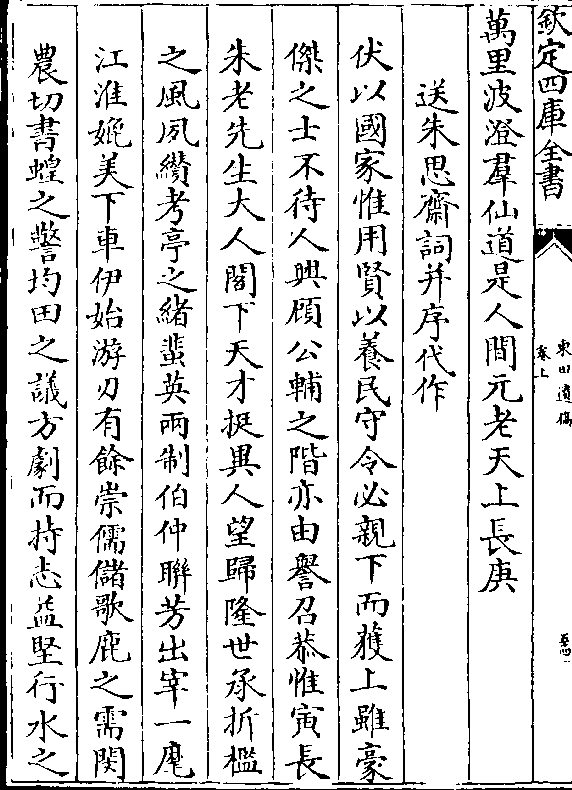 欽定四庫全書
東田遺稿
卷上
萬里波澄羣仙道是人間元老天上長庚
送朱思齋詞并序代作
伏以國家惟用賢以養民守令必親下而獲上雖豪
傑之士不待人興頋公輔之階亦由譽召恭惟寅長
朱老先生大人閣下天才挺異人望歸隆世承折檻
之風夙纘考亭之緒蜚英兩制伯仲聯芳出宰一麾
江淮媲美下車伊始游刃有餘崇儒儲歌鹿之需閔
農切書蝗之警均田之議方劇而持志益堅行水之